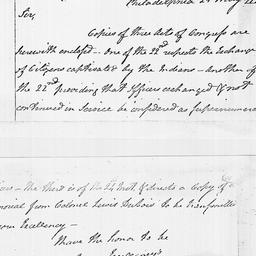 Philadelphia 24 May
Sir,
Copies of three Acts of Congress are
herewith enclosed – One of the 22nd respects the Exchange
of Citizens captivated by the Indians – Another of
the 22nd providing that Officers exchanged & not
continued in Service be considered as supernumerary
The third is of the 24 Inst & directs a Copy of a
Memorial from Colonel Lewis Dubois to be transmitted
your Excellency –
I have the honor to be